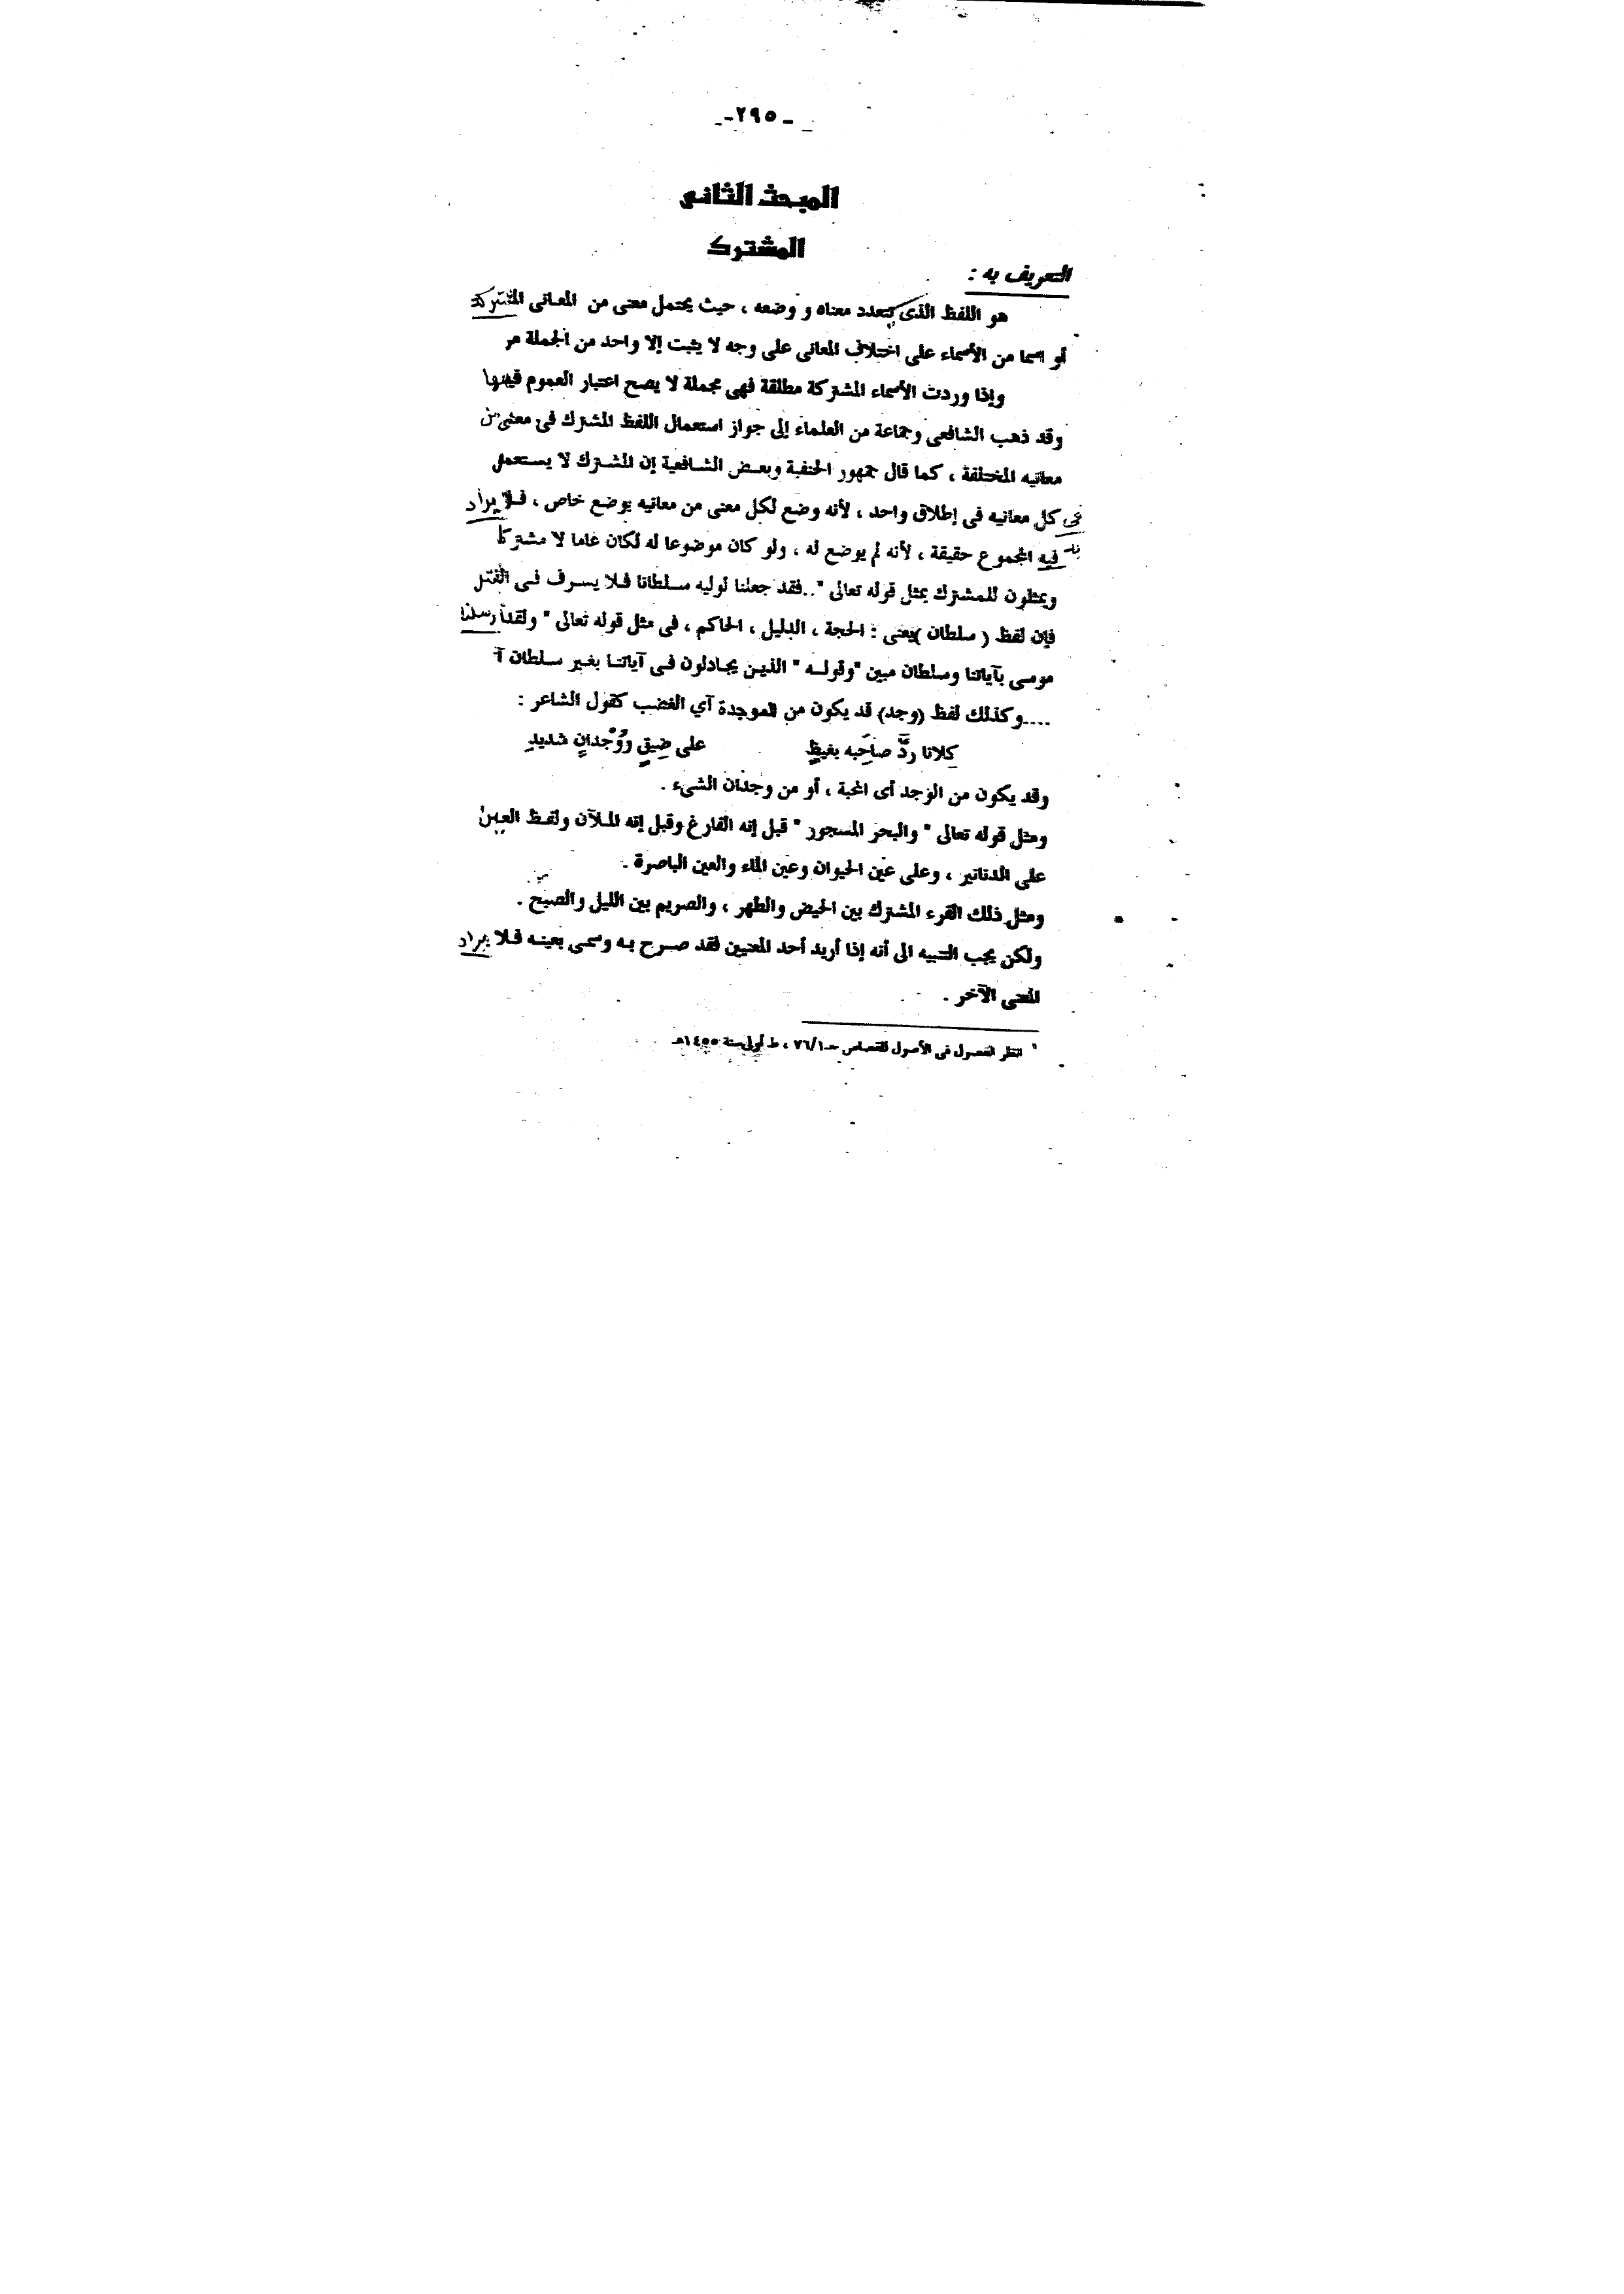 -٢٩٥-
المبحث الثانى
المشترك
التعريف به :
هو اللفظ الذى يتعدد معناه و وضعه ، حيث يحتمل معنى من المعانى المشتركة
أو اسما من الأسماء على اختلاف المعانى على وجه لا يثبت إلا واحد من الجملة مر
وإذا وردت الأسماء المشتركة مطلقة فهى مجملة لا يصح اعتبار العموم فيها
وقد ذهب الشافعى وجماعة من العلماء إلى جواز استعمال اللفظ المشترك فى معنى من
معانيه المختلفة ، كما قال جمهور الحنفية وبعض الشافعية إن المشترك لا يستعمل
فى كل معانيه فى إطلاق واحد ، لأنه وضع لكل معنى من معانيه بوضع خاص ، فلا يراد
فيه المجموع حقيقة ، لأنه لم يوضع له ، ولو كان موضوعا له لكان عاما لا مشتركا
ويمثلون للمشترك بمثل قوله تعالى "..فقد جعلنا لوليه سلطانا فلا يسرف فى القتل
فإن لفظ ( سلطان )يعنى : الحجة ، الدليل ، الحاكم ، فى مثل قوله تعالى " ولقد أرسلنا
موسى بآياتنا وسلطان مبين "وقوله " الذين يجادلون فى آياتنا بغير سلطان
....وكذلك لفظ (وجد) قد يكون من الموجدة آي الغضب كقول الشاعر :
كلانا ردَّ صاحِبه بغيظٍ على ضِيقٍ ووُجْدانٍ شديدِ
وقد يكون من الوجد أى المحبة ، أو من وجدان الشىء .
ومثل قوله تعالى " والبحر المسجور " قيل إنه الفارغ وقيل إنه الملآن ولفظ العين
على الدنانير ، وعلى عين الحيوان وعين الماء والعين الباصرة .
ومثل ذلك القرء المشترك بين الحيض والطهر ، والصريم بين الليل والصبح .
ولكن يجب التنبيه الى أنه إذا أريد أحد المعنيين فقد صرح به وسمى بعينه فلا يراد
المعنى الآخر .
' انظر الفصول فى الأصول للجصاص جـ٧٦/١ ، ط أولى سنة